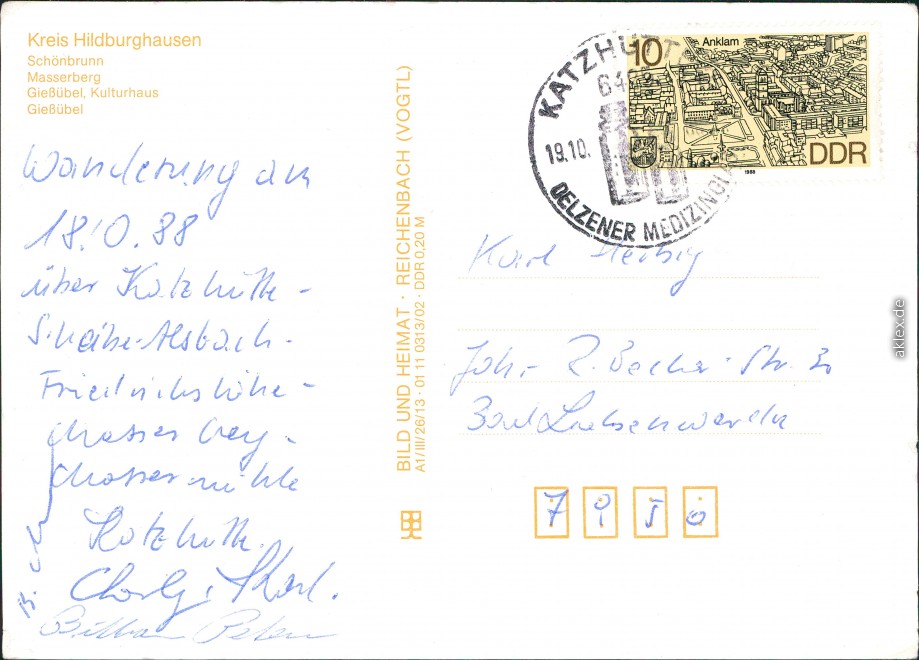 Kreis Hildburghausen
Schönbrunn
Masserberg
Gießübel, Kulturhaus
Gießübel
Wanderung am
18.10.88
über Katzhütte -
Scheibe-Alsbach -
Friedrichshöhe -
Masserberg -
Massermühle
Katzhütte.
BILD UND HEIMAT · REICHENBACH (VOGTL)
A1/III/26/13 · 01 11 0313/02 · DDR 0,20 M
KATZHÜTTE
64
19.10.
OELZENER MEDIZIN
10
Anklam
DDR
1988
Karl Herbig
Joh.- R. Becher-Str.
Bad Liebenwerda
7950
aklex.de